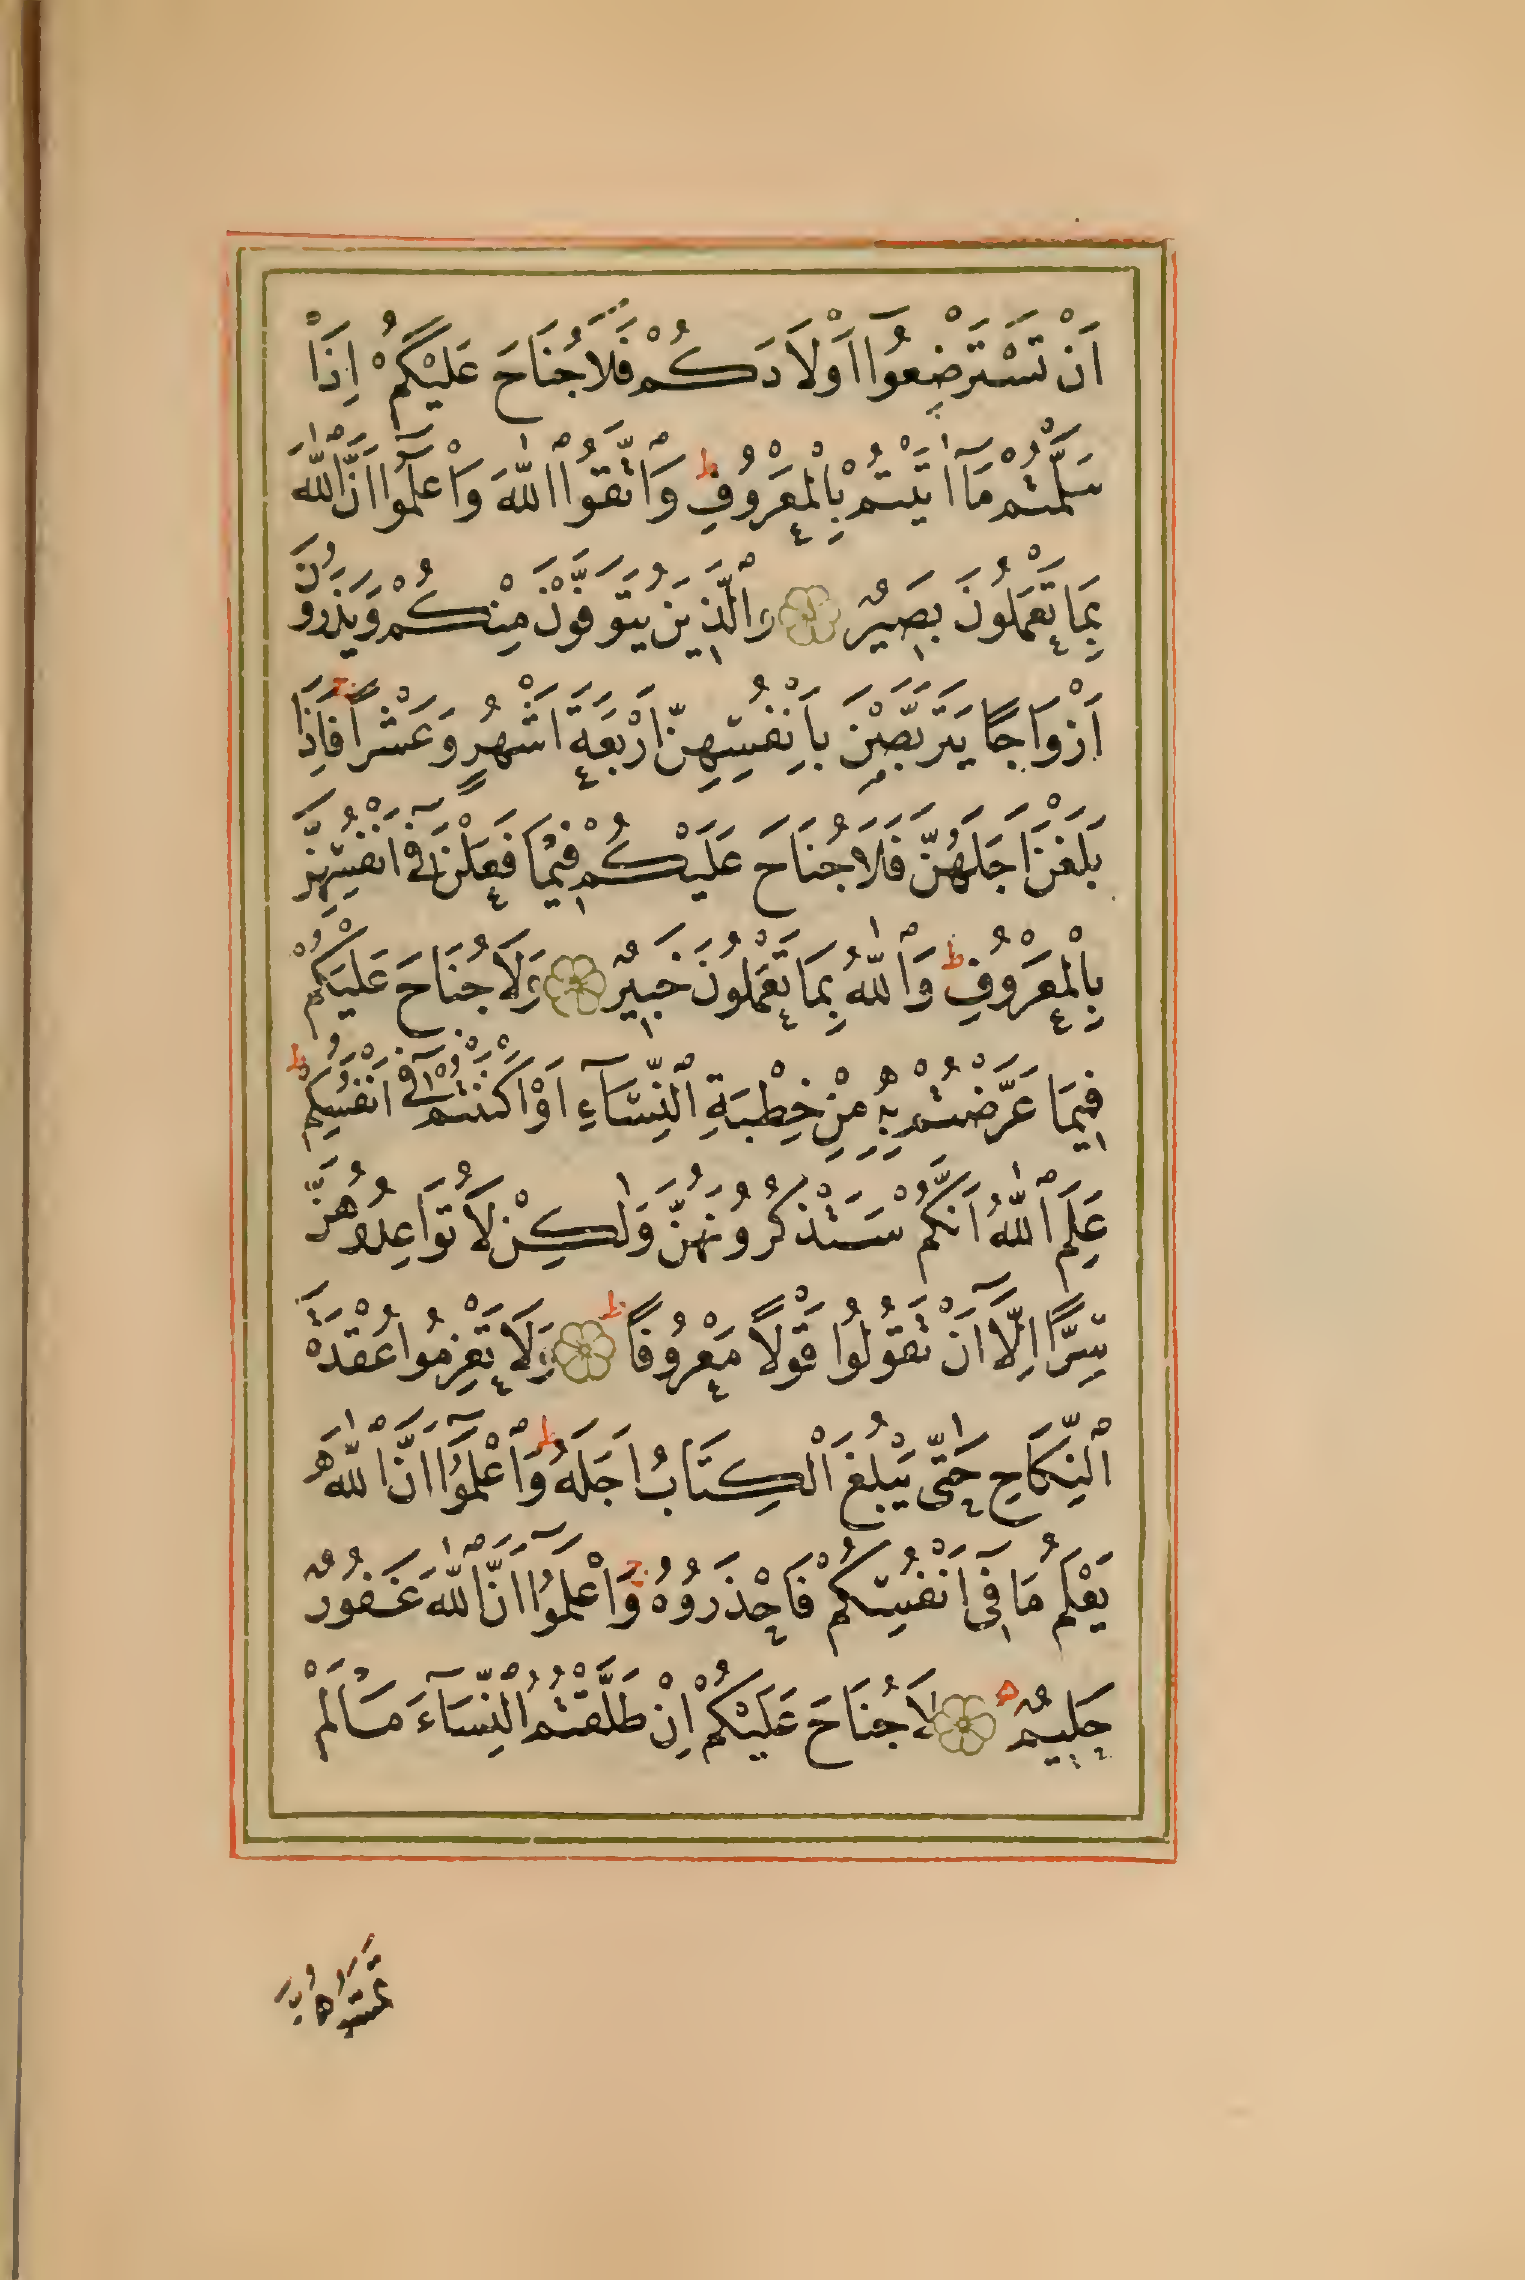 اَنْ تَسْتَرْضِعُوٓا اَوْلَادَكُمْ فَلَا جُنَاحَ عَلَيْكُمْ اِذَا
سَلَّمْتُمْ مَٓا اٰتَيْتُمْ بِالْمَعْرُوفِ ط وَاتَّقُوا اللّٰهَ وَاعْلَمُٓوا اَنَّ اللّٰهَ
بِمَا تَعْمَلُونَ بَصِيرٌ وَالَّذِينَ يُتَوَفَّوْنَ مِنْكُمْ وَيَذَرُونَ
اَزْوَاجًا يَتَرَبَّصْنَ بِاَنْفُسِهِنَّ اَرْبَعَةَ اَشْهُرٍ وَعَشْرًا ج فَاِذَا
بَلَغْنَ اَجَلَهُنَّ فَلَا جُنَاحَ عَلَيْكُمْ فِيمَا فَعَلْنَ فِٓى اَنْفُسِهِنَّ
بِالْمَعْرُوفِ ط وَاللّٰهُ بِمَا تَعْمَلُونَ خَبِيرٌ وَلَا جُنَاحَ عَلَيْكُمْ
فِيمَا عَرَّضْتُمْ بِهِ مِنْ خِطْبَةِ النِّسَٓاءِ اَوْ اَكْنَنْتُمْ فِٓى اَنْفُسِكُمْ ط
عَلِمَ اللّٰهُ اَنَّكُمْ سَتَذْكُرُونَهُنَّ وَلٰكِنْ لَا تُوَاعِدُوهُنَّ
سِرًّا اِلَّٓا اَنْ تَقُولُوا قَوْلًا مَعْرُوفًا ط وَلَا تَعْزِمُوا عُقْدَةَ
النِّكَاحِ حَتّٰى يَبْلُغَ الْكِتَابُ اَجَلَهُ ط وَاعْلَمُٓوا اَنَّ اللّٰهَ
يَعْلَمُ مَا فِٓى اَنْفُسِكُمْ فَاحْذَرُوهُ ج وَاعْلَمُٓوا اَنَّ اللّٰهَ غَفُورٌ
حَلِيمٌ ه لَا جُنَاحَ عَلَيْكُمْ اِنْ طَلَّقْتُمُ النِّسَٓاءَ مَا لَمْ
تَمَسُّوهُنَّ